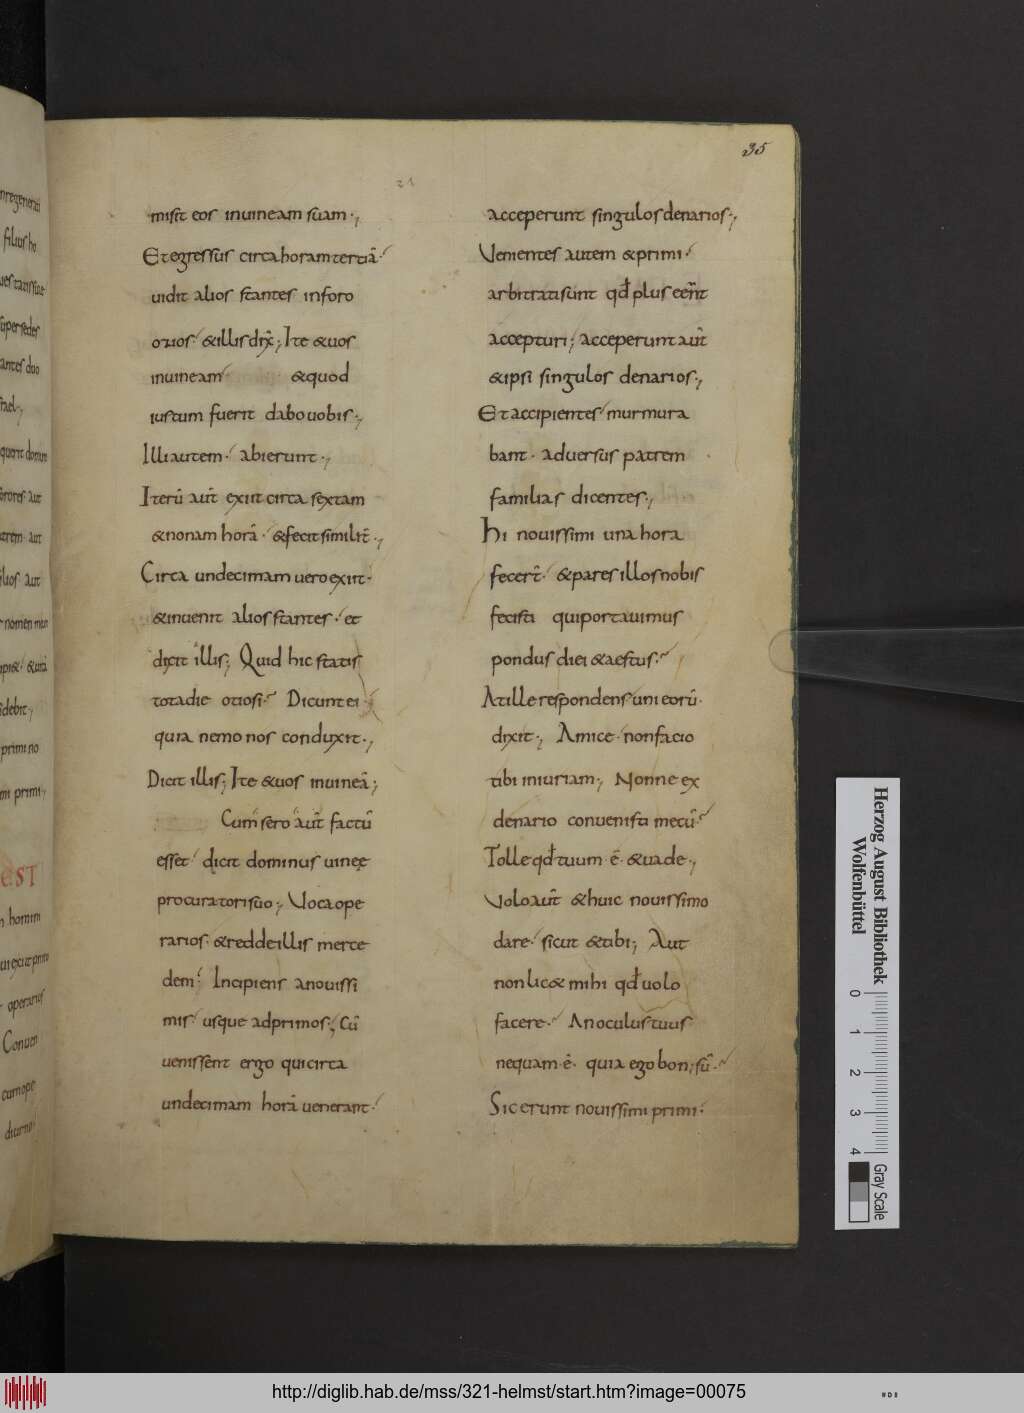 35
21
misit eos inuineam suam·,
Et egressus circa horam tertiā·
uidit alios stantes inforo
otiosˊ &illis dix̄; Ite &uos
inuineam &quod
iustum fuerit dabo uobis·,
Illi autem· abierunt·,
Iterū aut̄ exiit circa sextam
&nonam horā· &fecit similit̄·,
Circa undecimam uero exiit·
&inuenit alios stantes· et
dixit illis; Quid hic statis
tota die otiosi· Dicunt ei·
quia nemo nos conduxit·,
Dicit illis; Ite &uos inuineā;
Cum sero aut̄ factū
esset dicit dominus uineę
procuratori suo; Uoca ope
rarios &redde illis merce
dem· Incipiens anouissi
mis· usque adprimos; Cū
uenissent ergo qui circa
undecimam horā uenerant·
acceperunt singulos denarios·,
Uenientes autem &primi·
arbitrati sunt qđ plus eēnt
accepturi; acceperunt aut̄
&ipsi singulos denarios·,
Et accipientes murmura
bant· aduersus patrem
familias dicentes·,
Hi nouissimi una hora
fecer̄· &pares illos nobis
fecisti qui portauimus
pondus diei &aestus·
At ille respondens uni eorū·
dixit·, Amice· non facio
tibi iniuriam; Nonne ex
denario conuenisti mecū·
Tolle qđ tuum·ē· &uade·,
Uolo aut̄ &huic nouissimo
dare· sicut &tibi; Aut
non lic& mihi qđ uolo
facere· An oculus tuus
nequam·ē· quia ego bon;sū·
Sic erunt nouissimi primi·
filius ho
antes duo
querit domum
est
primi no
mi primi·,
homini
operarios
Conuen
cum ope
diurno·
Herzog August Bibliothek
Wolfenbüttel
0 1 2 3 4
Gray Scale
http://diglib.hab.de/mss/321-helmst/start.htm?image=00075